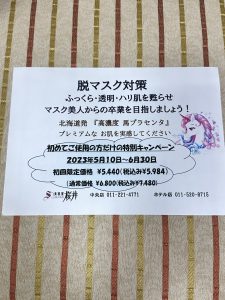 脱マスク対策
ふっくら・透明・ハリ肌を甦らせ
マスク美人からの卒業を目指しましょう！
北海道発 『高濃度 馬プラセンタ』
プレミアムな お肌を実感してください
初めてご使用の方だけの特別キャンペーン
2023年5月10日～6月30日
初回限定価格 ¥5,440(税込み¥5,984)
(通常価格 ¥6,800(税込み¥7,480)
桜井 中央店 011-221-4771 ホテル店 011-520-8715